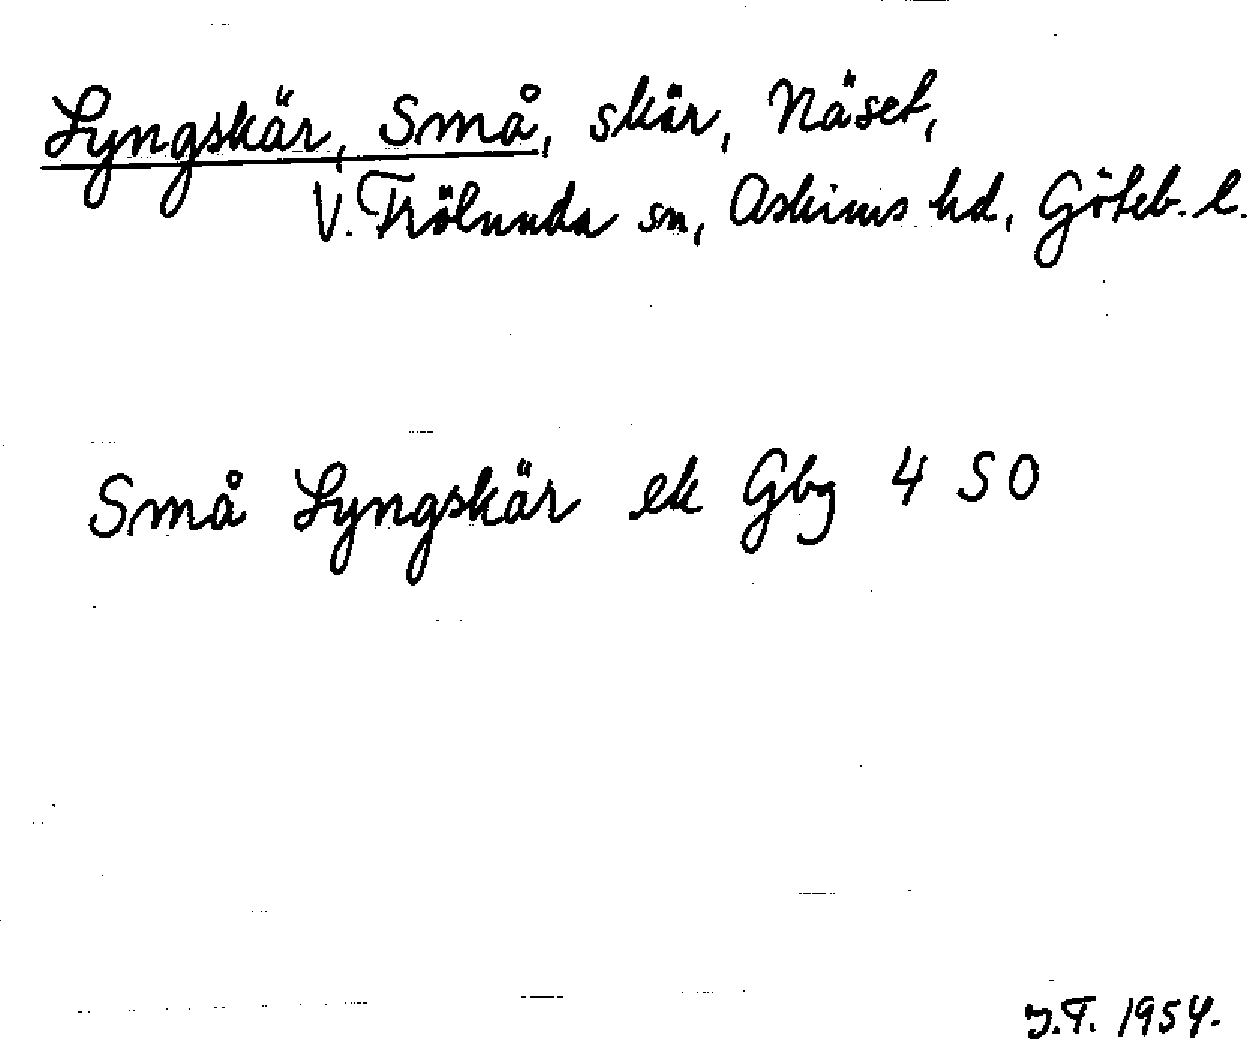 Lyngskär, Små, skär, Näset,
V. Frölunda sn, Askims hd, Göteb. l.
Små Lyngskär ek Gbg 4 SO
J.T. 1954.